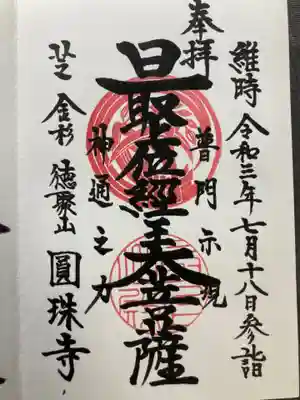 維時 令和三年七月十八日参詣
奉拝
普門示現
最上位經王大菩薩
神通之力
芝金杉 徳聚山 圓珠寺